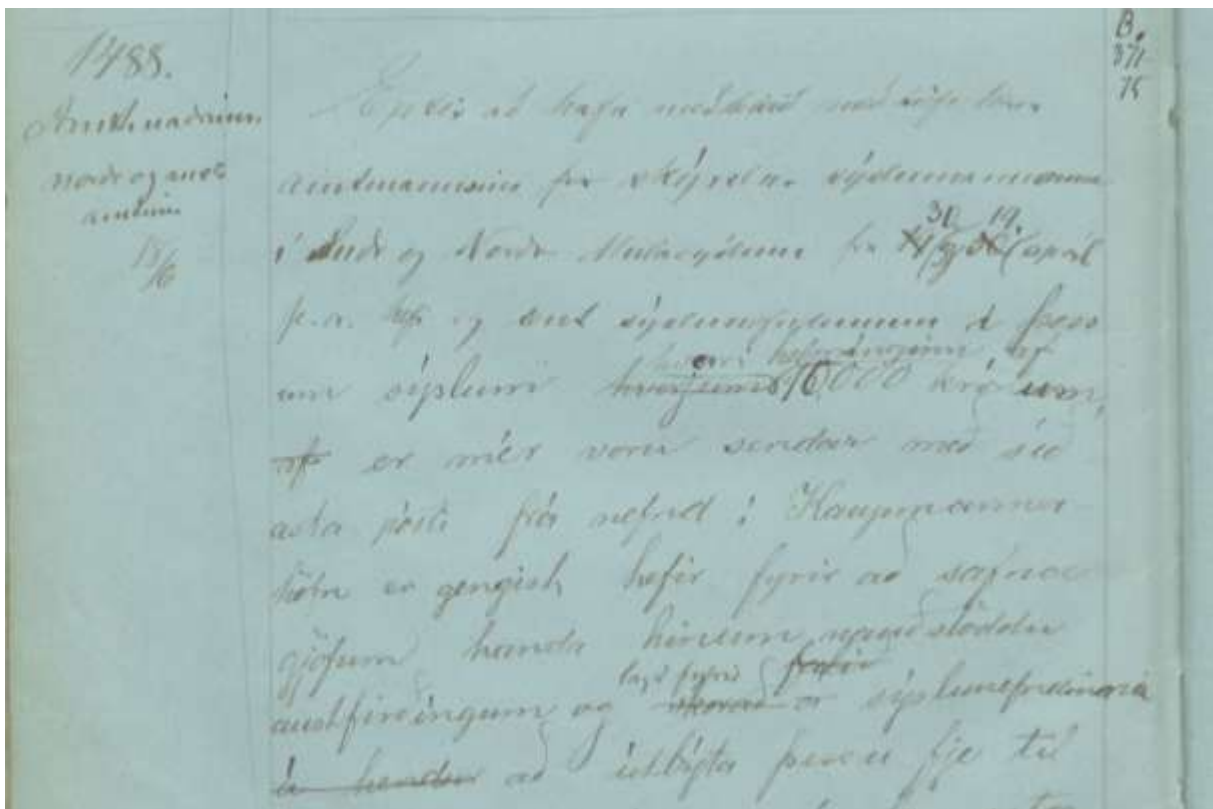 1488.
Amtmaðurinn
norðr og austr
amtinu
18/6
B.
371
75
Eptir að hafa meðtekið með bréfi herra
amtmannsins skýrslur sýslumannanna
í Suðr og Norðr Múlasýslum 30 19. apríl
þ.a. hefi eg sent sýslunefndunum í þess
um sýslum hverri helminginn af
16,000 krónum,
er mér voru sendar með síð
asta pósti frá nefnd í Kaupmanna
höfn er gengist hefir fyrir að safna
gjöfum handa hinum nauðstöddu
austfirðingum og lagt fyrir sýslunefndirnar
að útbýta þessu fje til